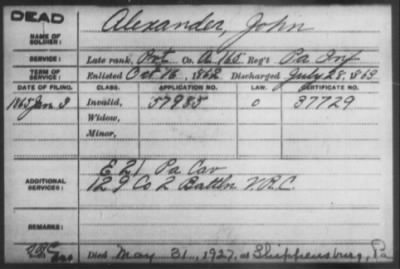 DEAD
NAME OF SOLDIER: Alexander, John
SERVICE: Late rank, Pvt Co. A 165 Reg't Pa Inf
TERM OF SERVICE: Enlisted Oct 16, 1862 Discharged July 28, 1863
DATE OF FILING. CLASS. APPLICATION NO. LAW. CERTIFICATE NO.
1865 Jan 3 Invalid, 57985 37729
Widow,
Minor,
E 21 Pa Cav
ADDITIONAL SERVICES: 129 Co 2 Battln V.R.C.
REMARKS:
Died May 31, 1927, at Shippensburg, Pa